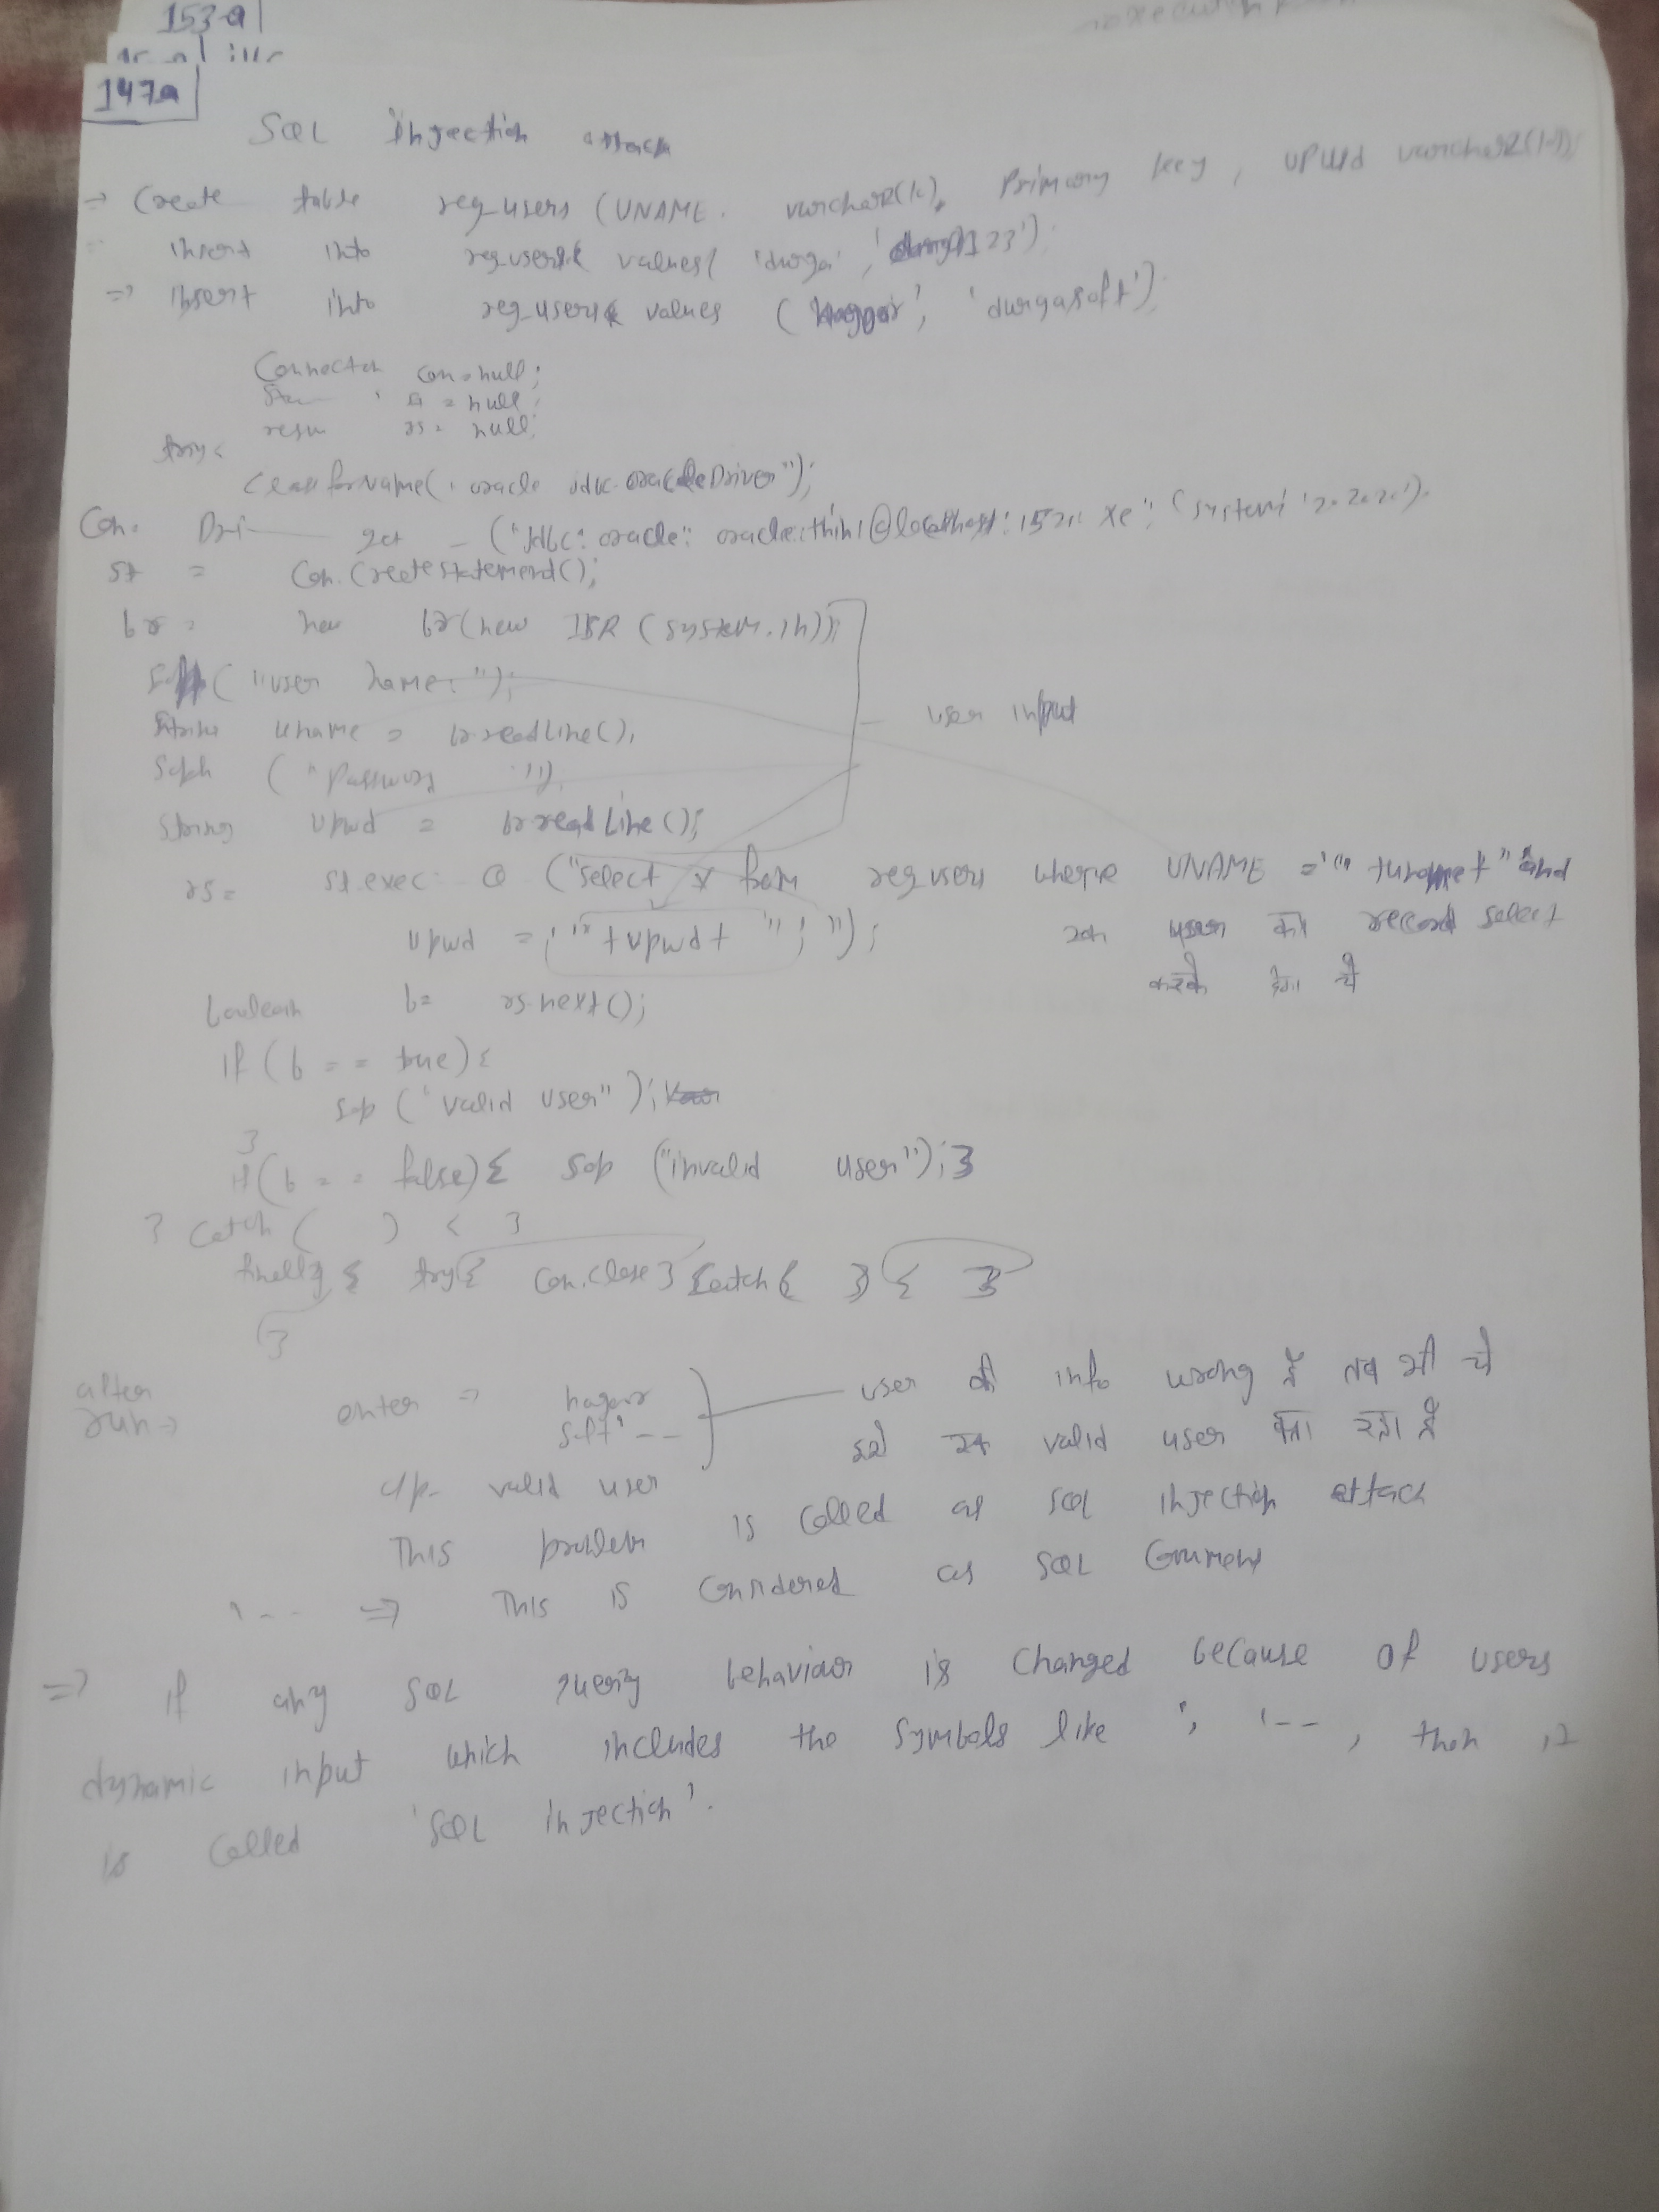 153-a
147a
SQL injection attack
=> Create table reg_users (UNAME. varchar2(10), Primary key, UPWD varchar2(10));
insert into regusers values( 'durga', 'durga123');
=> insert into regusers values ( 'nagoor', 'durgasoft');
Connection con = null;
st = null;
resu rs = null;
try{
Class.forName("oracle jdbc.oracleDriver");
Con. Dri get ("Jdbc: oracle: oracle:thin:@localhost:1521: xe",
st = Con.Createstatement();
br = new br(new ISR (system.in));
("user name: ");
String uname = br.readLine();
user input
Sopln ("Password ");
String upwd = br.readLine();
rs = st.exec. Q ("select * from regusers where UNAME ='"+uname+"'and
upwd = '"+upwd+"'; ");
एक user का record select
करके देगा ये
boolean b= rs.next();
If (b == true){
sop ("valid user");
}
if (b == false){ sop ("invalid user");}
} Catch ( ) { }
finally { try{ con.close} catch { }} { }
}
after
run =>
enter => nagoor
soft' --
user की info wrong है तब भी ये
इसे एक valid user बता रहा है
o/p- valid user
This problem is called as SQL injection attack
'-- => This is considered as SQL Comment
=> if any SQL query behaviour is changed because of users
dynamic input which includes the symbols like ', '-- , then it
is called 'SQL injection'.